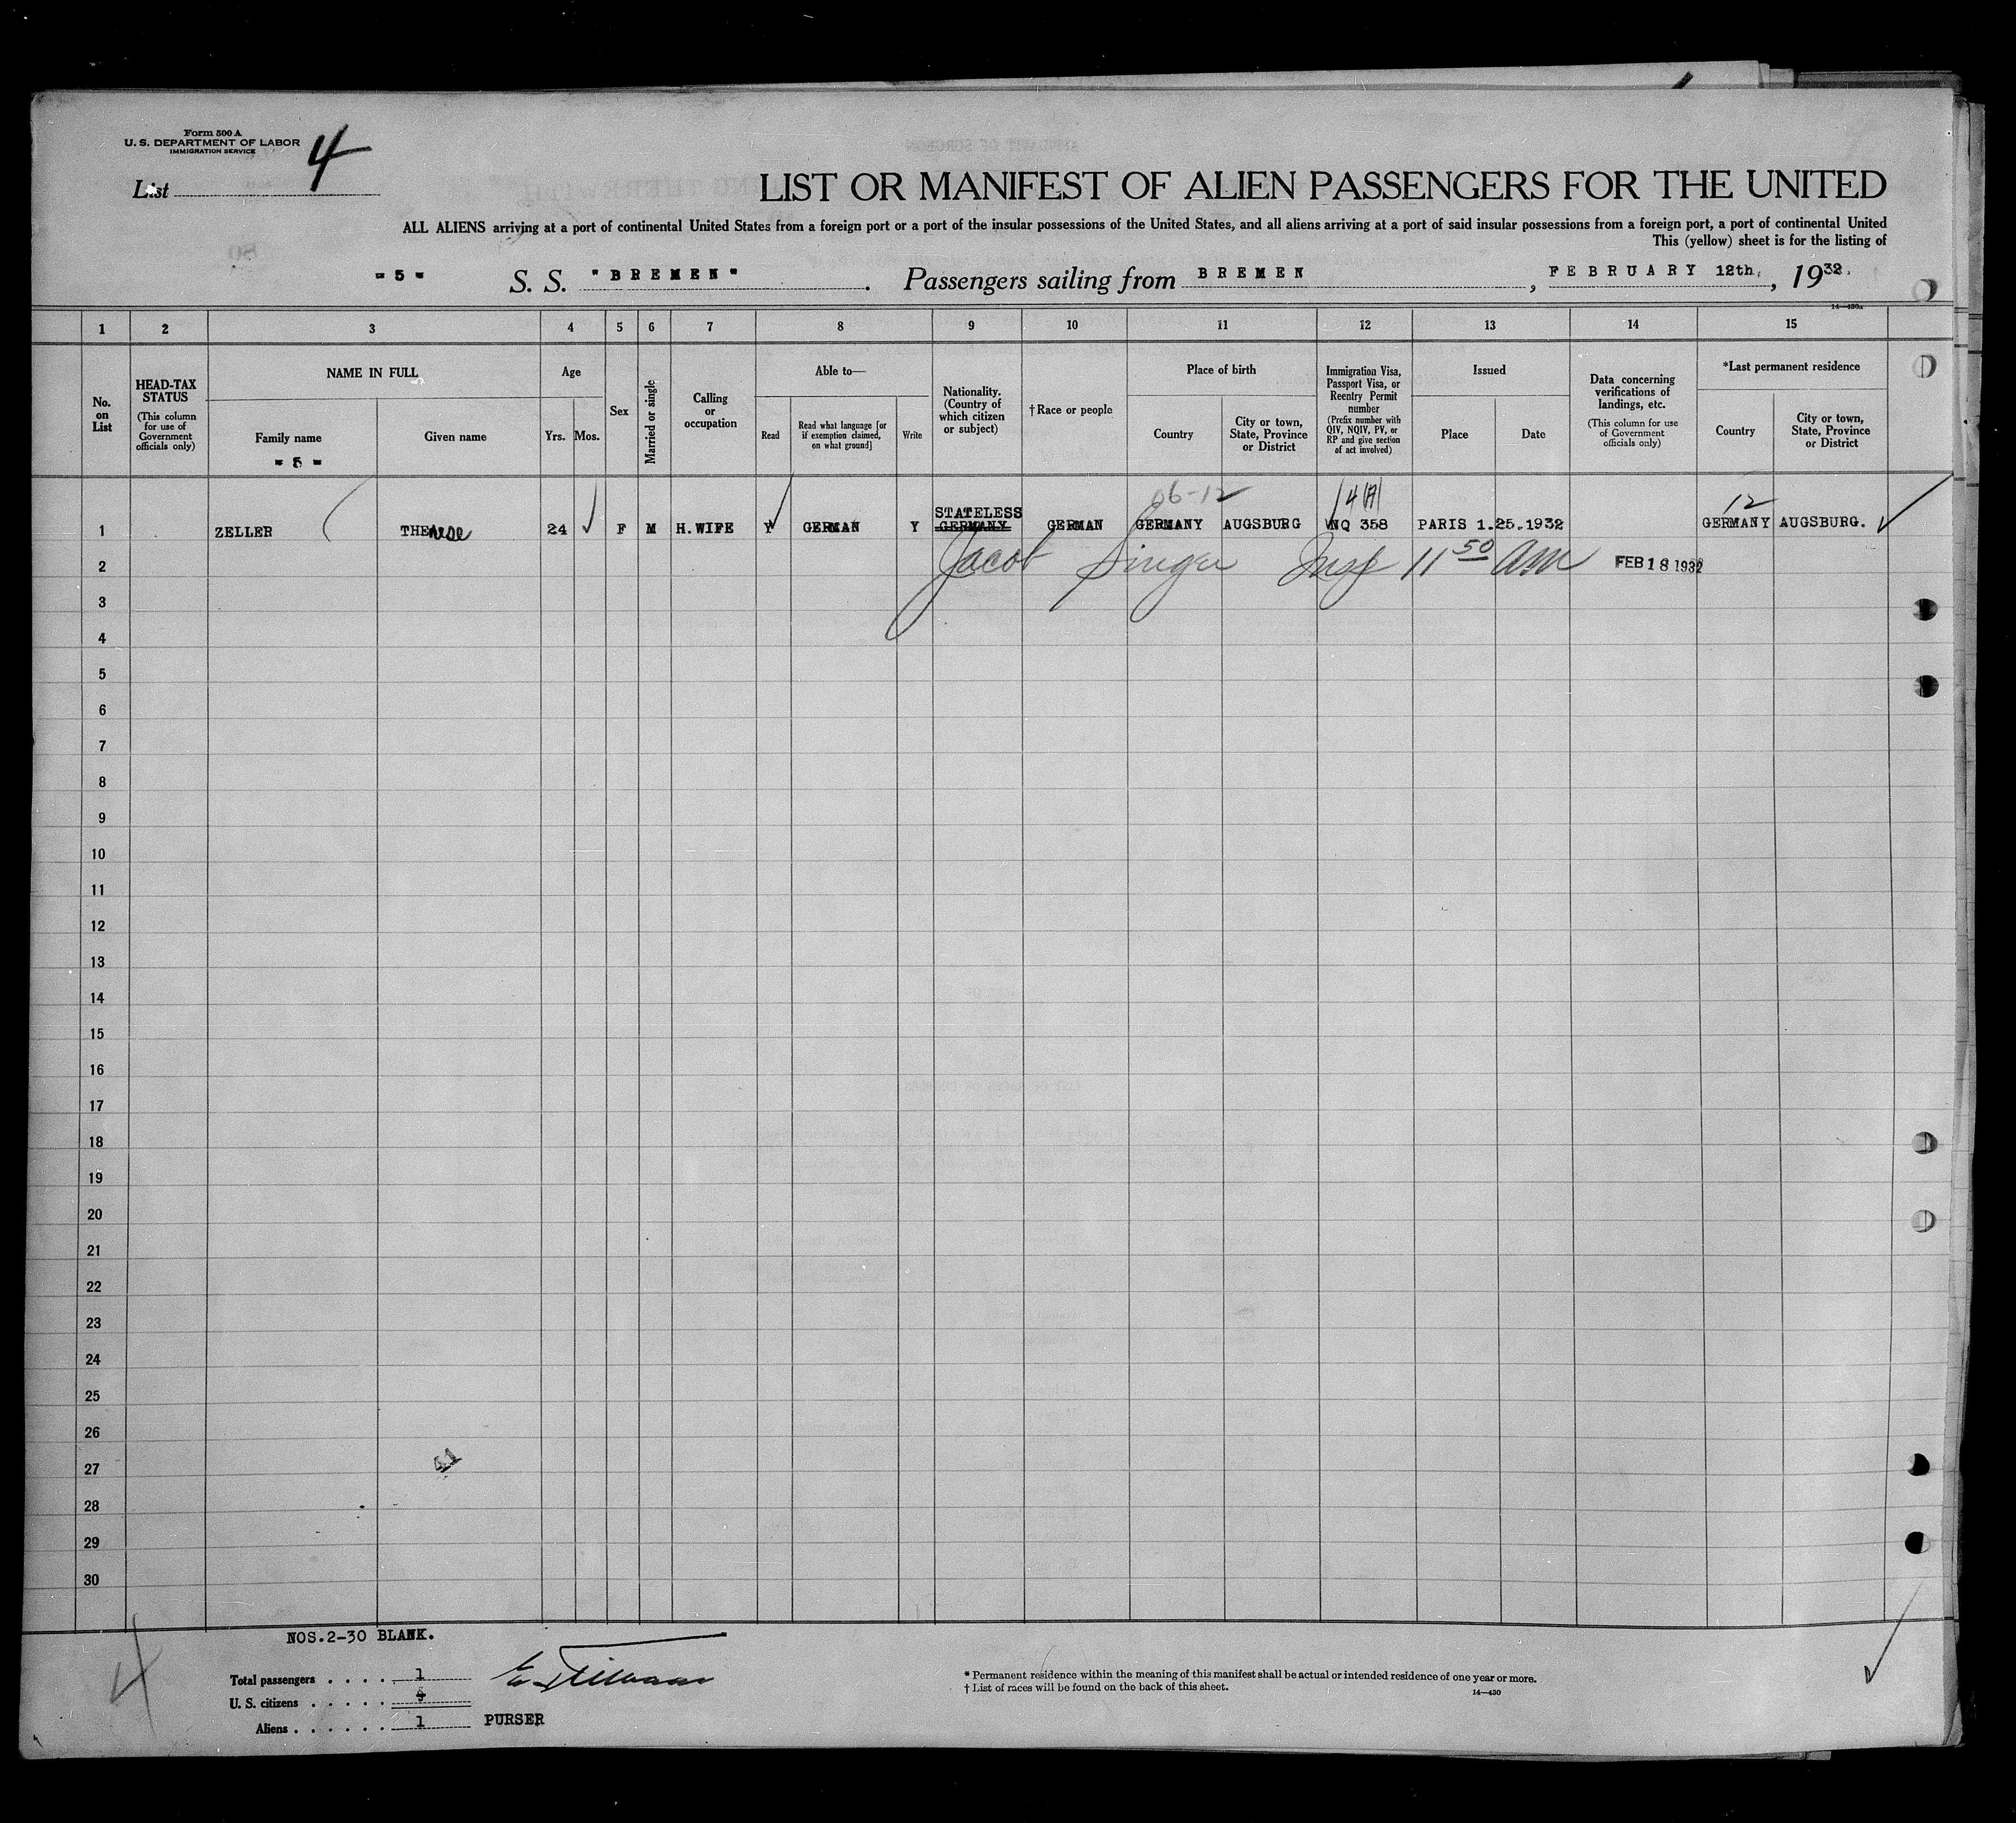 Form 500 A
U. S. DEPARTMENT OF LABOR
IMMIGRATION SERVICE
List 4
LIST OR MANIFEST OF ALIEN PASSENGERS FOR THE UNITED
ALL ALIENS arriving at a port of continental United States from a foreign port or a port of the insular possessions of the United States, and all aliens arriving at a port of said insular possessions from a foreign port, a port of continental United
This (yellow) sheet is for the listing of
- 5 - S. S. "BREMEN". Passengers sailing from BREMEN, FEBRUARY 12th, 1932.
14—430a
1 2 3 4 5 6 7 8 9 10 11 12 13 14 15
No. on List
HEAD-TAX STATUS
(This column for use of Government officials only)
NAME IN FULL
Family name
- 5 -
Given name
Age
Yrs. Mos.
Sex
Married or single
Calling or occupation
Able to—
Read
Read what language [or if exemption claimed, on what ground]
Write
Nationality. (Country of which citizen or subject)
† Race or people
Place of birth
Country
City or town, State, Province or District
Immigration Visa, Passport Visa, or Reentry Permit number
(Prefix number with QIV, NQIV, PV, or RP and give section of act involved)
Issued
Place
Date
Data concerning verifications of landings, etc.
(This column for use of Government officials only)
*Last permanent residence
Country
City or town, State, Province or District
06-12 12
STATELESS
1 ZELLER THERESE 24 F M H.WIFE Y GERMAN Y GERMANY GERMAN GERMANY AUGSBURG NQ 358 PARIS 1.25.1932 GERMANY AUGSBURG.
2 Jacob Singer Insp 11 50 AM FEB 18 1932
3
4
5
6
7
8
9
10
11
12
13
14
15
16
17
18
19
20
21
22
23
24
25
26
27
28
29
30
NOS.2-30 BLANK.
4
Total passengers . . . . . 1
U. S. citizens . . . . .
Aliens . . . . . . 1 PURSER
* Permanent residence within the meaning of this manifest shall be actual or intended residence of one year or more.
† List of races will be found on the back of this sheet.
14—430